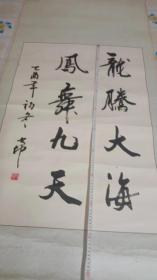 龍騰大海
鳳舞九天
乙酉年初冬